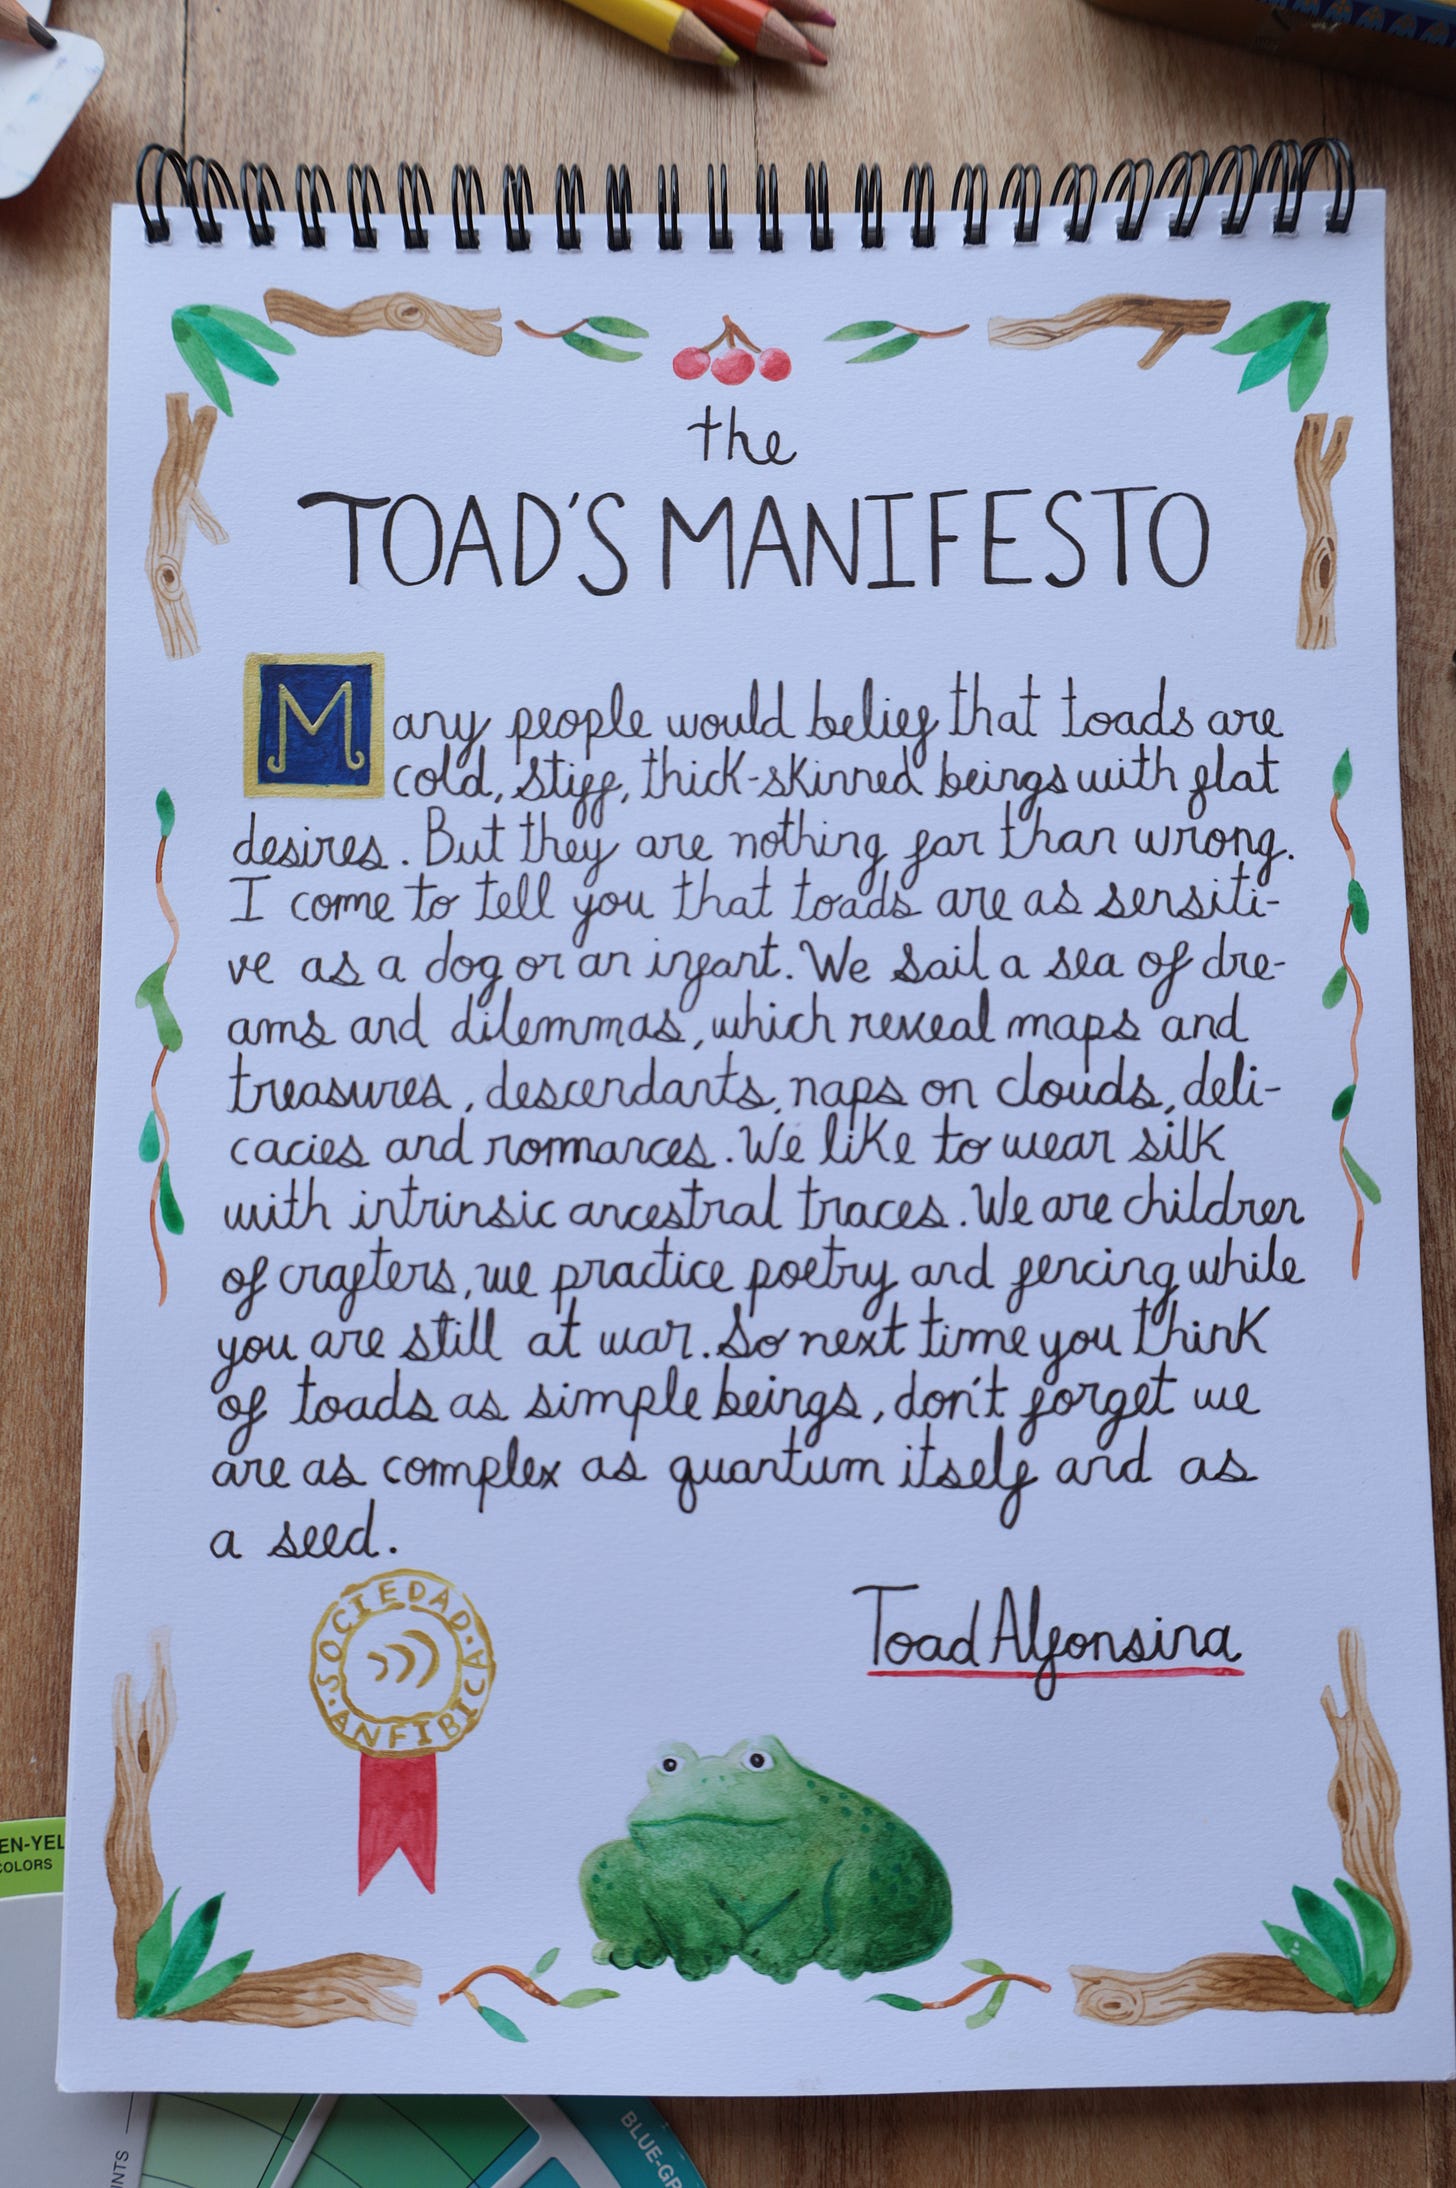 the
TOAD'S MANIFESTO
Many people would belief that toads are
cold, stiff, thick-skinned beings with flat
desires. But they are nothing far than wrong.
I come to tell you that toads are as sensiti-
ve as a dog or an infant. We sail a sea of dre-
ams and dilemmas, which reveal maps and
treasures, descendants, naps on clouds, deli-
cacies and romances. We like to wear silk
with intrinsic ancestral traces. We are children
of crafters, we practice poetry and fencing while
you are still at war. So next time you think
of toads as simple beings, don't forget we
are as complex as quantum itself and as
a seed.
Toad Alfonsina
·SOCIEDAD·
ANFIBICA
EN-YEL
COLORS
INTS
BLUE-GR